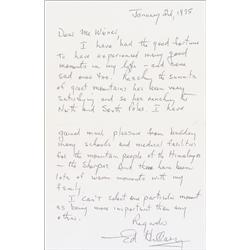 January 2nd, 1995
Dear Mr
I have had the good fortune
to have experienced many good
moments in my life - and some
sad ones too. Reaching the summits
of great mountains has been very
satisfying and so has reaching the
North and South Poles. I have
gained much pleasure from building
many schools and medical facilities
for the mountain people of the Himalayas
- the Sherpas. And there have been
lots of warm moments with my
family.
I can't select one particular moment
as being more important than any
other.
Regards
Ed Hillary